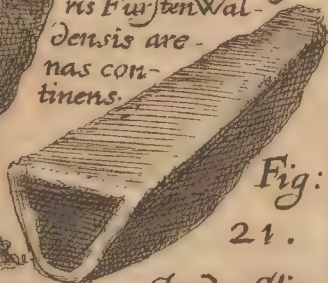 ris FurstenWal-
densis are-
nas con-
tinens.
Fig:
21.